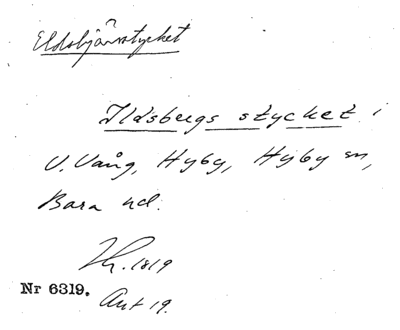 Eldsbjärsstycket
Ildsbergs stycket i
V. Vång, Hyby, Hyby sn,
Bara hd.
1819
Nr 6319.
Ant 19.